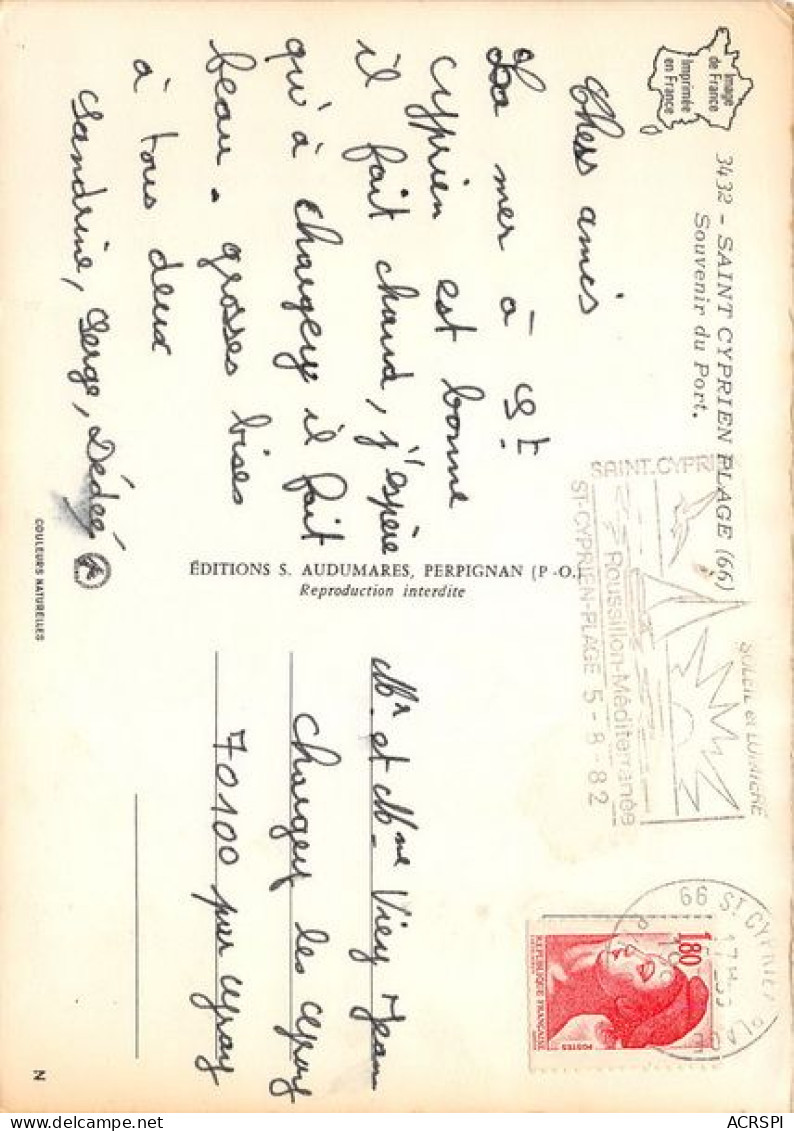 Image
de France
Imprimée
en France
3432 - SAINT CYPRIEN PLAGE (66)
Souvenir du Port.
Chers amis
La mer à St
Cyprien est bonne
il fait chaud, j'espère
qu'à Chargey il fait
beau. grosses bises
à tous deux
Sandrine, Serge, Dédée
COULEURS NATURELLES
ÉDITIONS S. AUDUMARES, PERPIGNAN (P.-O.)
Reproduction interdite
SAINT.CYPRIEN
SOLEIL et LUMIERE
Roussillon-Méditerranée
ST-CYPRIEN-PLAGE 5-8-82
66 ST CYPRIEN PLAGE
1,80
REPUBLIQUE FRANÇAISE
POSTES
Mr et Mme Viey Jean
Chargey les Gray
70100 par Gray
N
ACRSPI